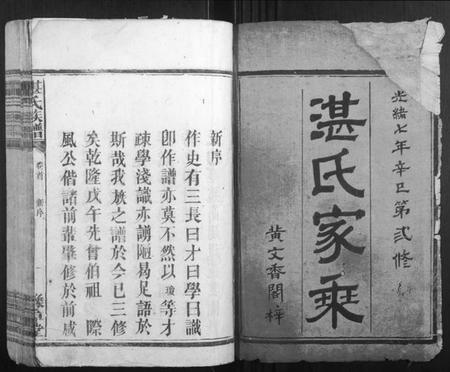 光緒七年辛巳第弍修
湛氏家乘
黃文香閣梓
新序
作史有三長曰才曰學曰識
卽作譜亦莫不然以瓊等才
疎學淺識亦謭陋曷足語於
斯哉我族之譜於今已三修
矣乾隆戊午先曾伯祖 際
風公偕諸前輩肇修於前咸
湛氏族譜
卷首 新序